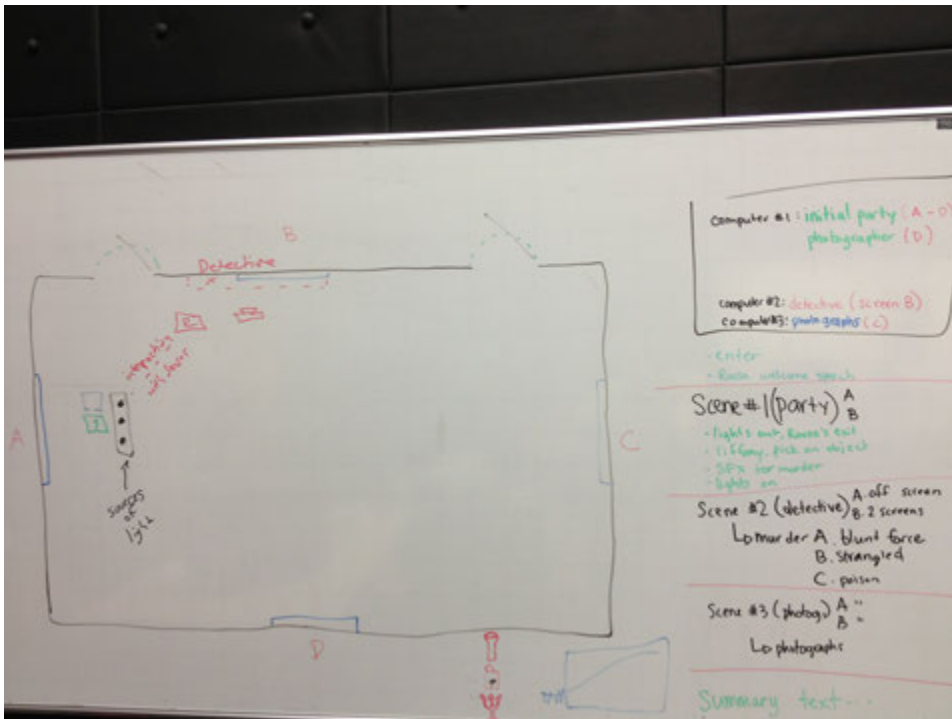 B
Detective
interactivity
A
sources
of
light
C
D
computer #1: initial party (A-D)
photographer (D)
computer #2: detective (screen B)
computer #3: photographs (C)
- enter
- welcome speech
Scene #1 (party) A
B
- lights out, exit
- Tiffany, pick an object
- SFX for murder
- lights on
Scene #2 (detective) A. off screen
B. 2 screens
murder A. blunt force
B. strangled
C. poison
Scene #3 (photog) A "
B "
photographs
Summary text...